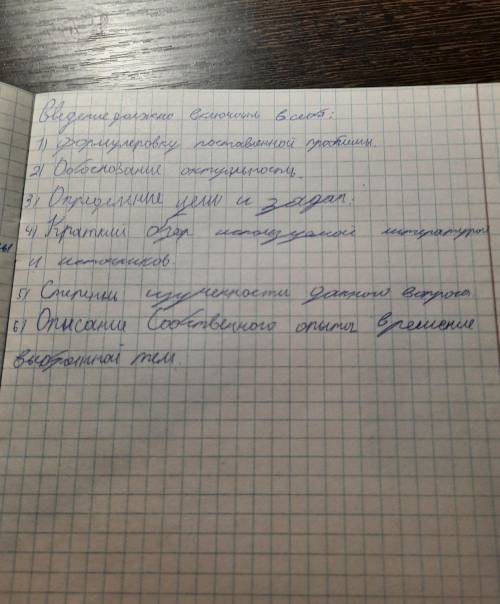 Введение должно включать в себя:
1) Формулеровку поставленной проблемы.
2) Обоснование актуальности.
3) Определение цели и задач.
4) Краткий обзор используемой литературы
и источников.
5) Степень изученности данного вопроса
6) Описание собственного опыта в решение
выбранной темы.